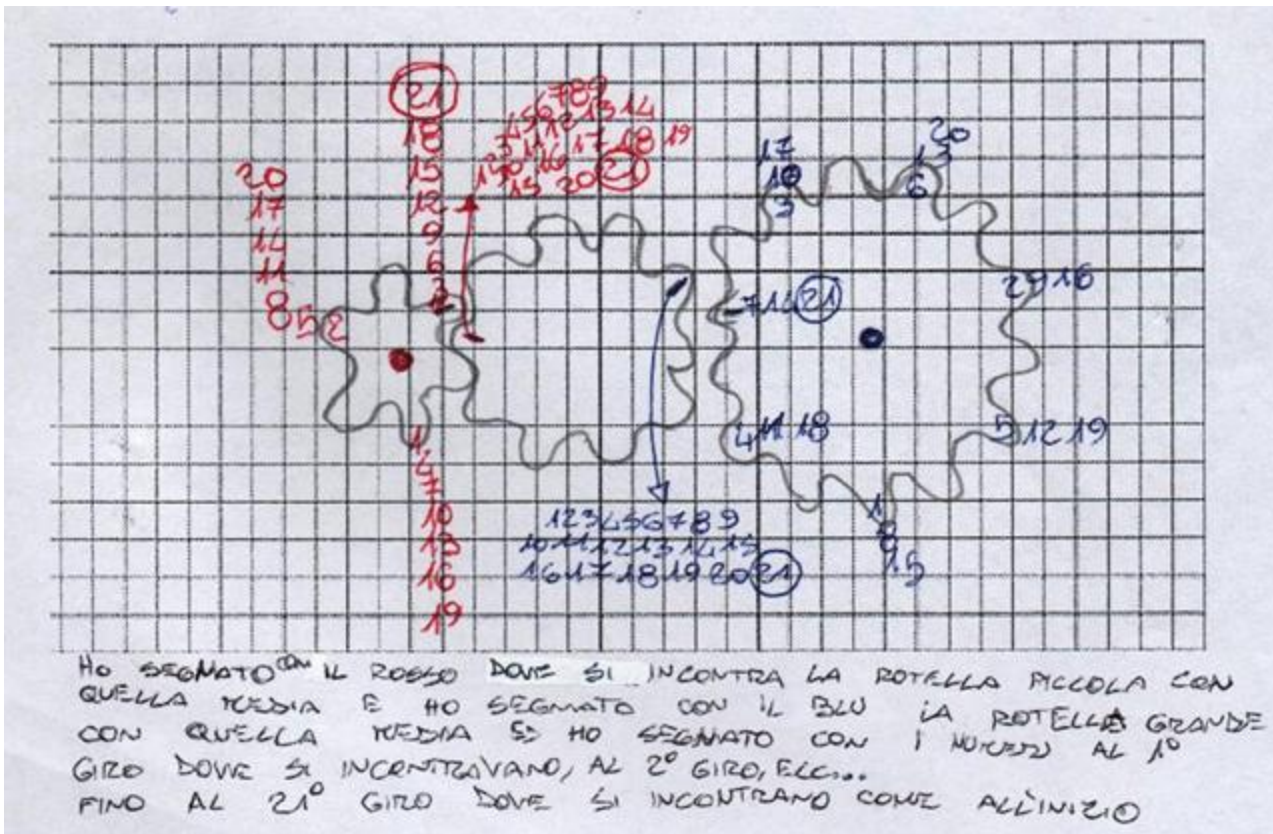 21
18
15
12
9
6
3
20
17
14
11
8 5 2
1
4
7
10
13
16
19
1 2 3 4 5 6 7 8 9
10 11 12 13 14
15 16 17 18 19
20 21
17
10
3
20
13
6
2 9 16
7 14 21
4 11 18
5 12 19
1
8
15
1 2 3 4 5 6 7 8 9
10 11 12 13 14 15
16 17 18 19 20 21
HO SEGNATO CON IL ROSSO DOVE SI INCONTRA LA ROTELLA PICCOLA CON
QUELLA MEDIA E HO SEGNATO CON IL BLU LA ROTELLA GRANDE
CON QUELLA MEDIA ED HO SEGNATO CON I NUMERI AL 1°
GIRO DOVE SI INCONTRAVANO, AL 2° GIRO, ECC...
FINO AL 21° GIRO DOVE SI INCONTRANO COME ALL'INIZIO